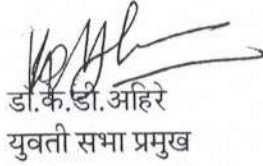 डॉ.के.डी.अहिरे
युवती सभा प्रमुख